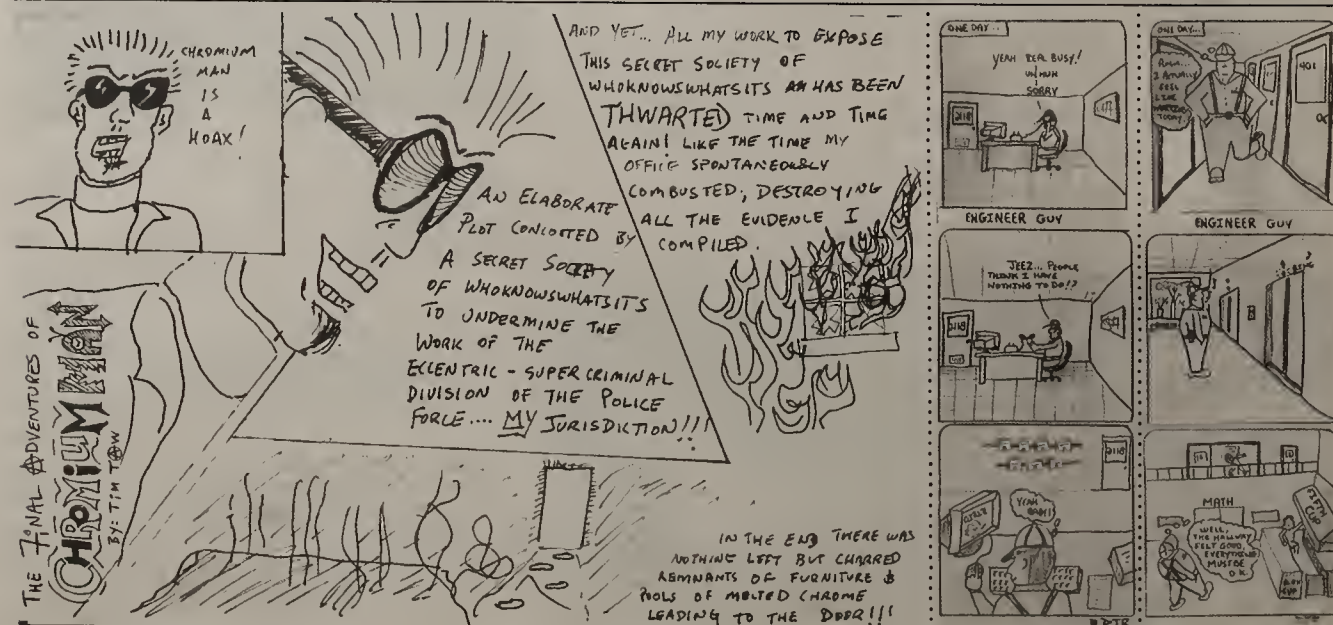 CHROMIUM
MAN
IS
A
HOAX!
THE FINAL ADVENTURES OF
CHROMIUM MAN
BY: TIM TAW
AN ELABORATE
PLOT CONCOCTED BY
A SECRET SOCIETY
OF WHOKNOWSWHATSITS
TO UNDERMINE THE
WORK OF THE
ECCENTRIC - SUPER CRIMINAL
DIVISION OF THE POLICE
FORCE.... MY JURISDICTION!!!
AND YET... ALL MY WORK TO EXPOSE
THIS SECRET SOCIETY OF
WHOKNOWSWHATSITS HAS BEEN
THWARTED TIME AND TIME
AGAIN! LIKE THE TIME MY
OFFICE SPONTANEOUSLY
COMBUSTED, DESTROYING
ALL THE EVIDENCE I
COMPILED.
IN THE END THERE WAS
NOTHING LEFT BUT CHARRED
REMNANTS OF FURNITURE &
POOLS OF MELTED CHROME
LEADING TO THE DOOR!!!
ONE DAY...
YEAH REAL BUSY!
UH HUH
SORRY
2118
ENGINEER GUY
JEEZ... PEOPLE
THINK I HAVE
NOTHING TO DO!?
2118
2118
YEAH
BABY!
ONE DAY...
I ACTUALLY
FEEL
LIKE
WORKING
TODAY
401
ENGINEER GUY
MATH
WELL,
THE HALLWAY
FELT GOOD,
EVERYTHING
MUST BE
O.K.
FIFTH
CUP